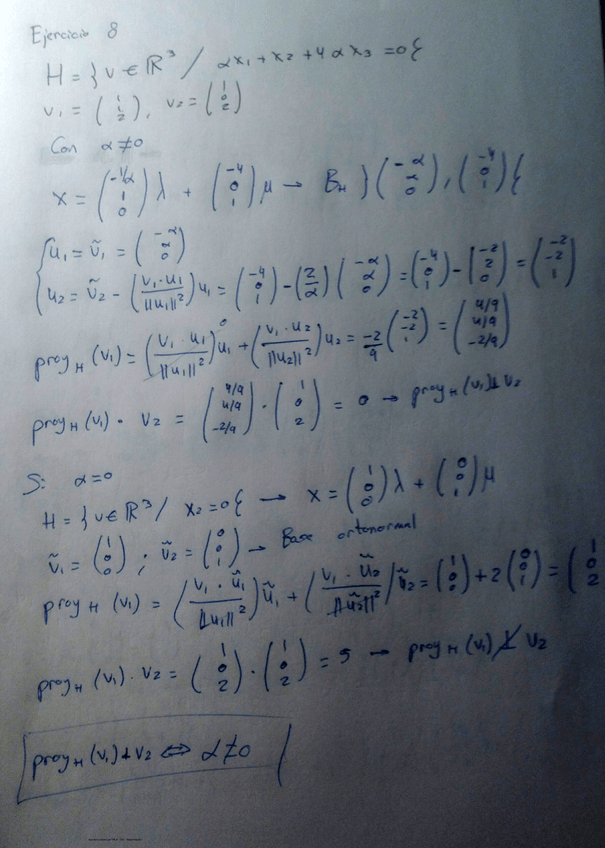 Ejercicio 8
H = } v ∈ ℝ³ / αx₁ + x₂ + 4αx₃ = 0 {
v₁ = (1 1 2), v₂ = (1 0 2)
Con α ≠ 0
x = (-1/α 1 0) λ + (-4 0 1) μ → B_H } (-α α 0), (-4 0 1) {
{ u₁ = ṽ₁ = (-α α 0)
u₂ = ṽ₂ - (v₁·u₁ / ||u₁||²) u₁ = (-4 0 1) - (2/α) (-α α 0) = (-4 0 1) - (-2 2 0) = (-2 -2 1)
proy_H (v₁) = (v₁·u₁ / ||u₁||²)⁰ u₁ + (v₁·u₂ / ||u₂||²) u₂ = -2/9 (-2 -2 1) = (4/9 4/9 -2/9)
proy_H (v₁) · v₂ = (4/9 4/9 -2/9) · (1 0 2) = 0 → proy_H (v₁) ⊥ v₂
Si α = 0
H = } v ∈ ℝ³ / x₂ = 0 { → x = (1 0 0) λ + (0 0 1) μ
ṽ₁ = (1 0 0) ; ṽ₂ = (0 0 1) → Base ortonormal
proy_H (v₁) = (v₁·ũ₁ / ||u₁||²) ũ₁ + (v₁·ũ₂ / ||ũ₂||²) ũ₂ = (1 0 0) + 2 (0 0 1) = (1 0 2
proy_H (v₁) · v₂ = (1 0 2) · (1 0 2) = 5 → proy_H (v₁) ⊥̸ v₂
proy_H (v₁) ⊥ v₂ ⇔ α ≠ 0